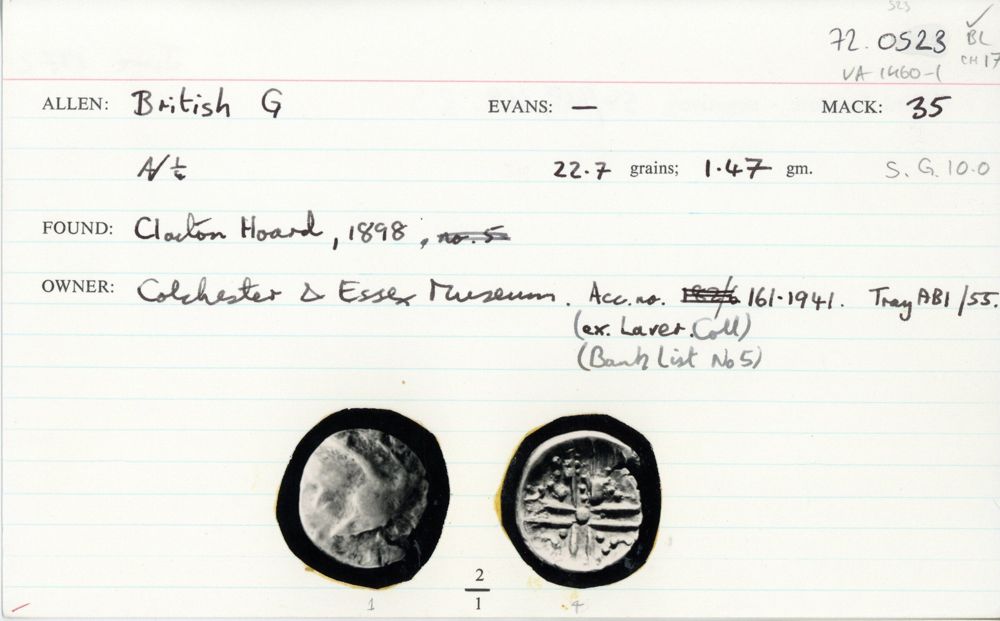 523
72.0523 BL
VA 1460-1 CH 17
ALLEN: British G EVANS: — MACK: 35
A/ ¼ 22.7 grains; 1.47 gm. S.G. 10.0
FOUND: Clacton Hoard, 1898, no. 5
OWNER: Colchester & Essex Museum. Acc. no. 161-1941. Tray AB1/55.
(ex. Laver. Coll)
(Bank List No 5)
2
1 1 4